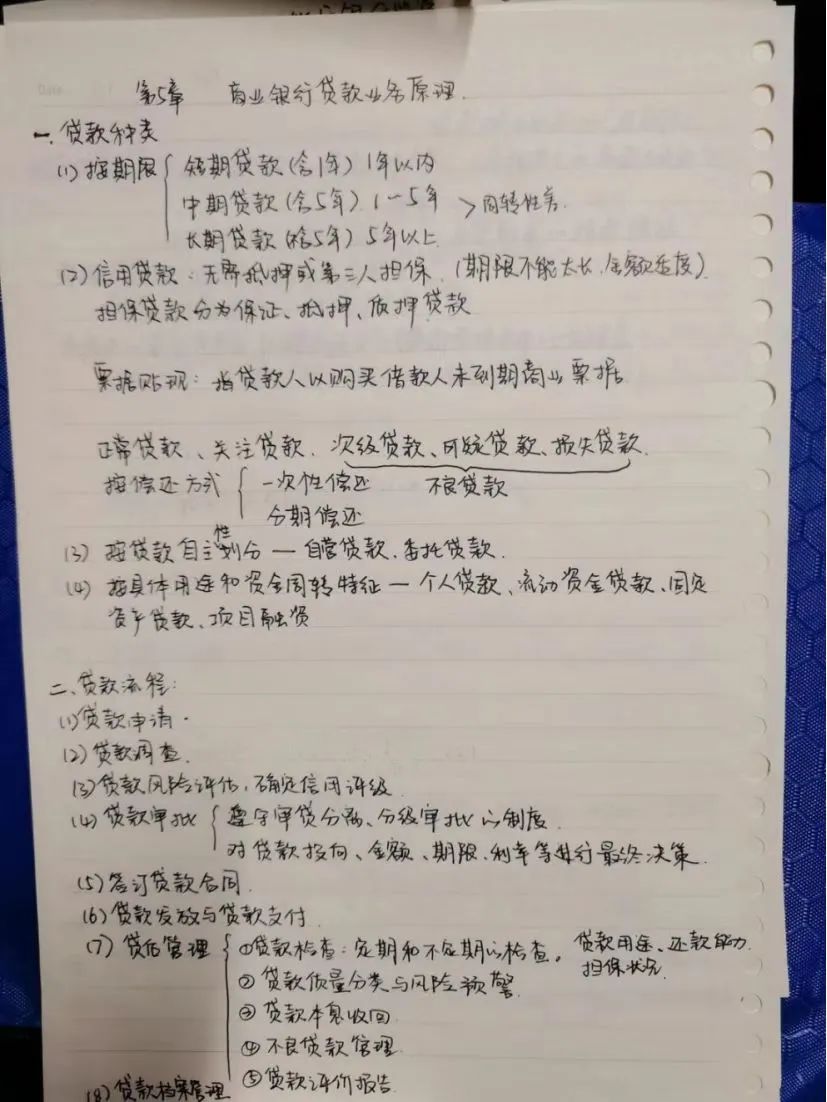 第5章 商业银行贷款业务原理.
一.贷款种类
(1)按期限{短期贷款(含1年) 1年以内
中期贷款(含5年) 1-5年 >周转性差.
长期贷款(不含5年) 5年以上
(2)信用贷款:无需抵押或第三人担保.(期限不能太长.金额适度)
担保贷款分为保证、抵押、质押贷款
票据贴现:指贷款人以购买借款人未到期商业票据
正常贷款、关注贷款.次级贷款、可疑贷款、损失贷款.
按偿还方式{一次性偿还 不良贷款
分期偿还
(3)按贷款自主性划分—自营贷款.委托贷款.
(4)按具体用途和资金周转特征—个人贷款、流动资金贷款、固定
资产贷款、项目融资
二、贷款流程:
(1)贷款申请.
(2)贷款调查.
(3)贷款风险评估,确定信用评级
(4)贷款审批{遵守审贷分离、分级审批的制度.
对贷款投向、金额、期限.利率等进行最终决策.
(5)签订贷款合同.
(6)贷款发放与贷款支付.
(7)贷后管理{①贷款检查:定期和不定期的检查。贷款用途、还款能力
担保状况.
②贷款质量分类与风险预警.
③贷款本息收回
④不良贷款管理.
⑤贷款评价报告.
(8)贷款档案管理